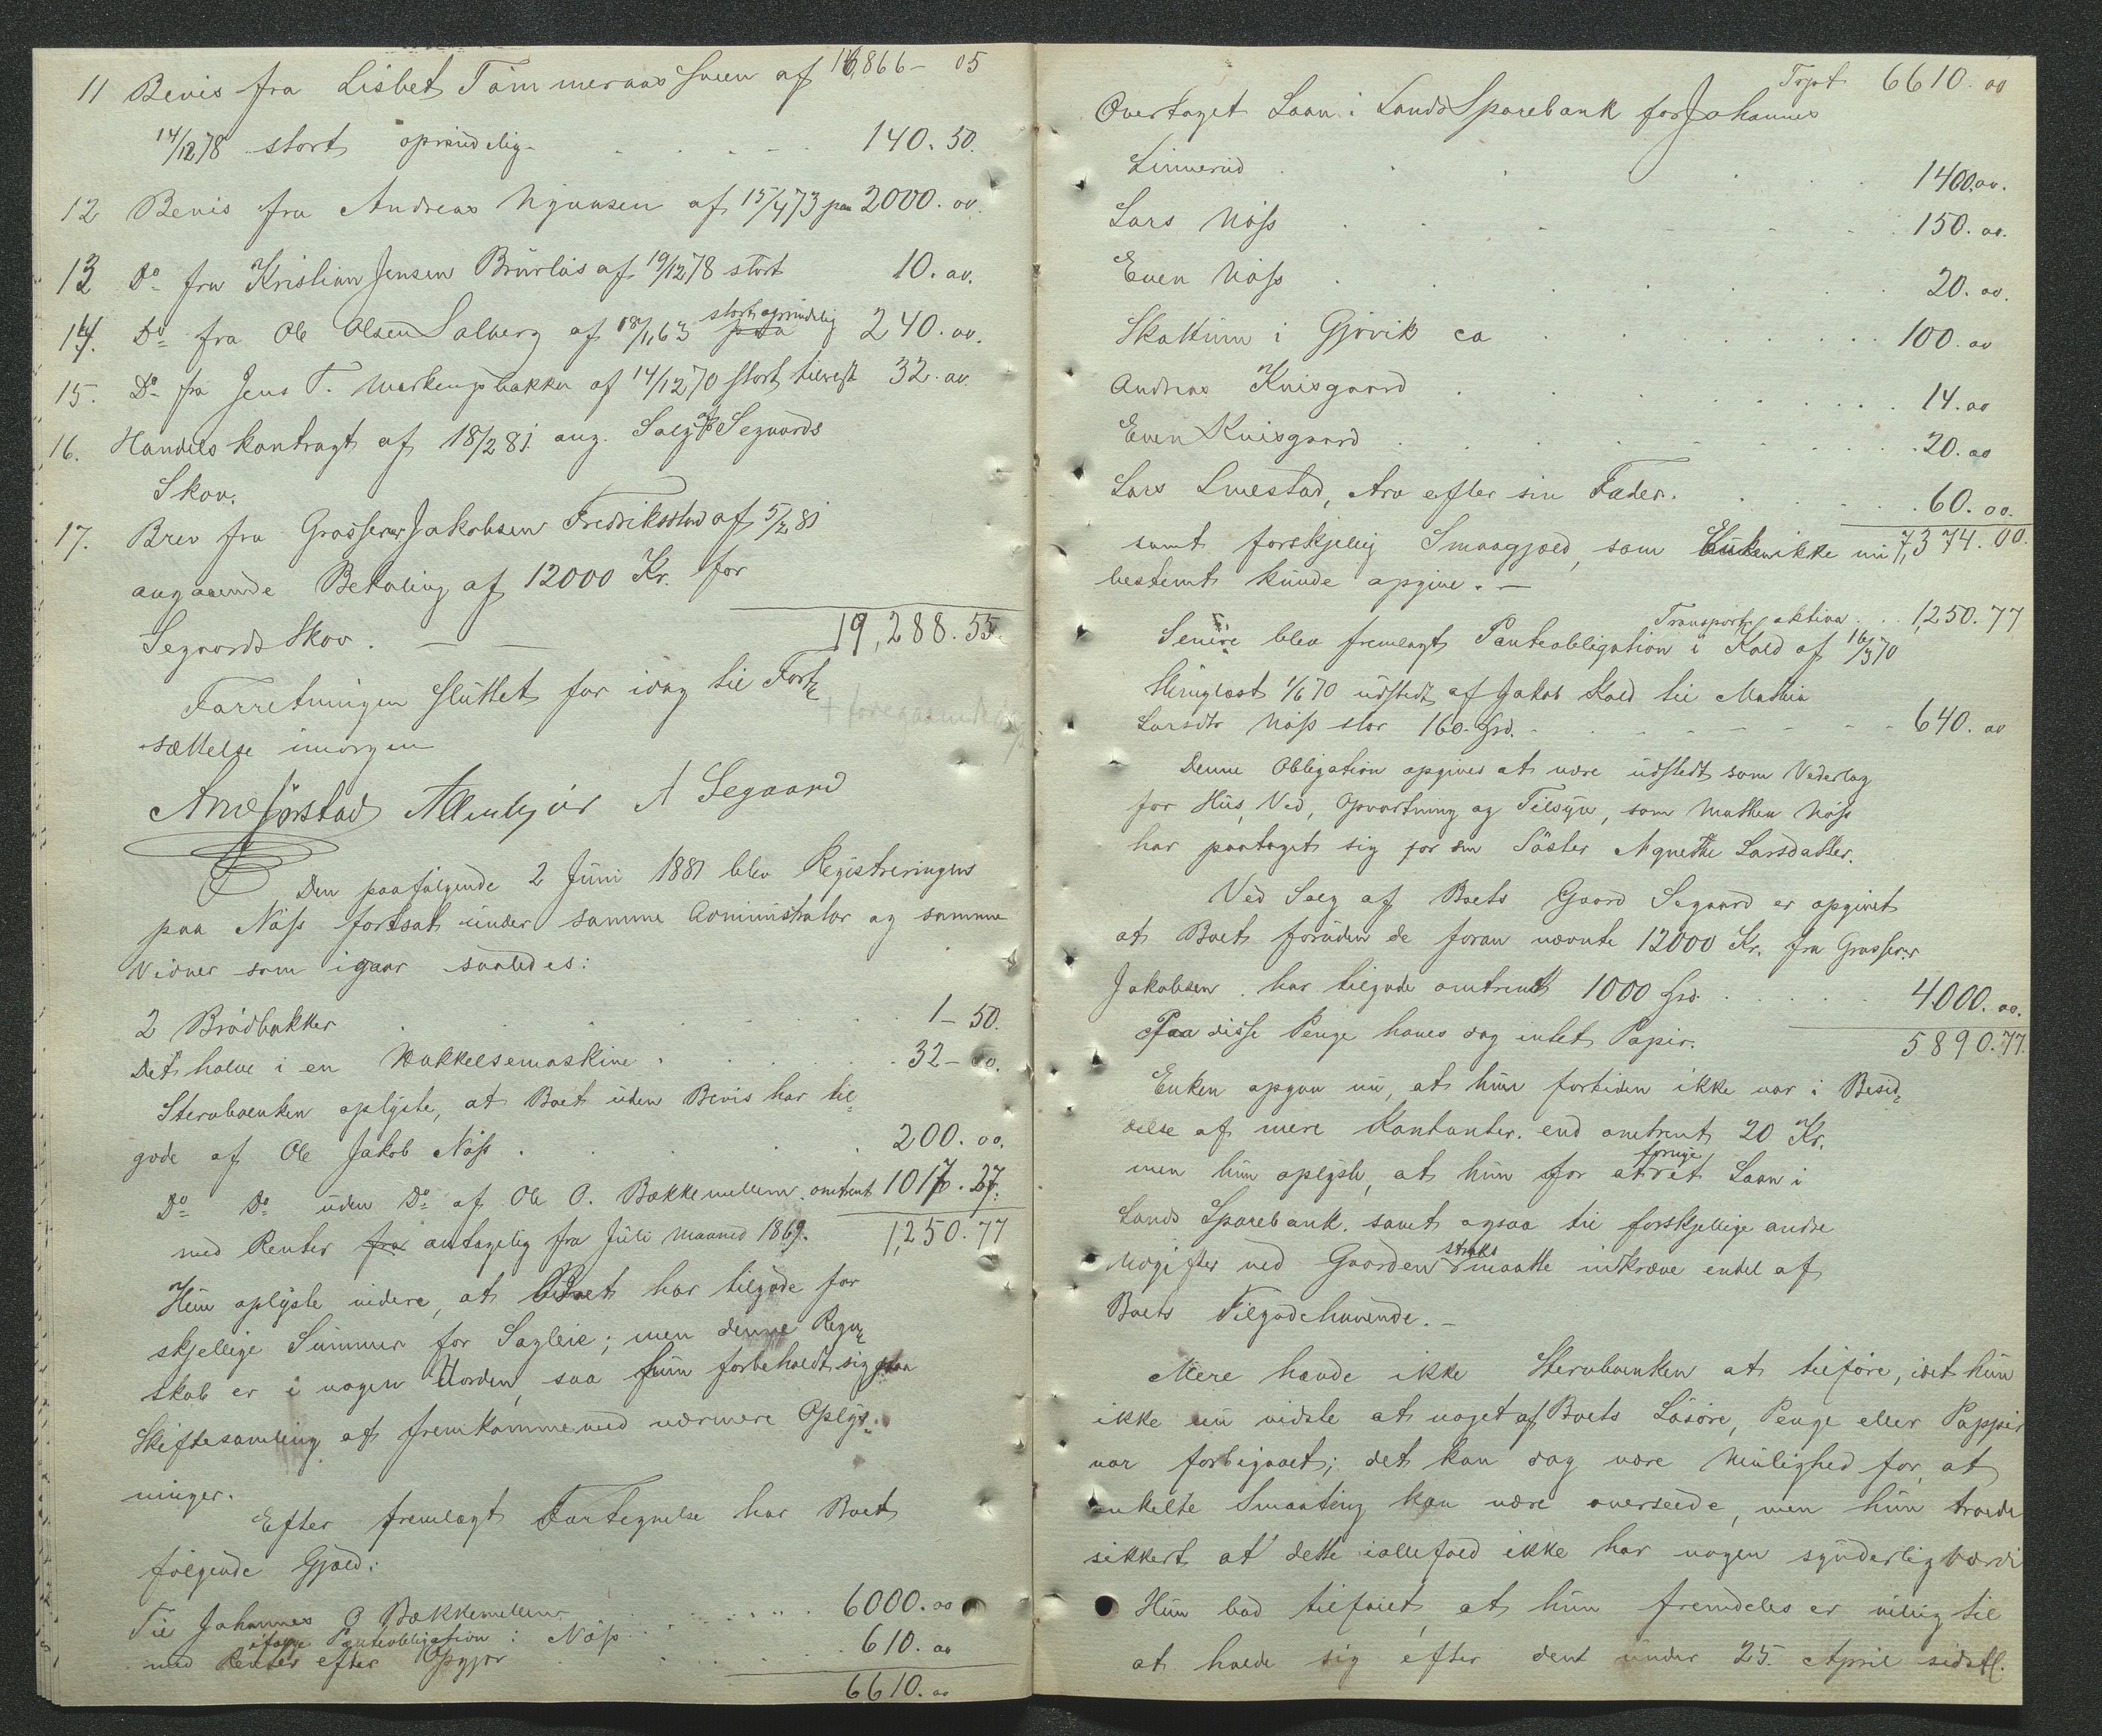 16,866 - 05
11 Bevis fra Lisbet Tømmeraas Sveen af
14/12 78 stort oprindelig 140. 50.
12 Bevis fra Andreas Nyhusen af 15/4 73 paa 2000. 00.
13 Do fra Kristian Jensen af 19/12 78 stort 10. 00.
14. Do fra Ole Olsen Salberg af 18/1 63 stort oprindelig 240. 00.
15. Do fra Jens T. af 14/12 70 stort tilrest 32. 00
16. Handelskontragt af 18/2 81. ang. Salg af Segaards
Skov.
17. Brev fra Grosserer Jakobsen Fredriksstad af 5/2 81
angaaende Betaling af 12000 Kr. for
Segaards Skov. — — 19,288. 55.
Forretningen sluttet for idag til Fort-
sættelse imorgen
A Segaard
Den paafølgende 2 Juni 1881 blev Registreringen
paa Næss fortsat under samme Administrator og samme
Vidner som igaar saaledes:
2 Brødbakker 1 - 50.
Det halve i en Hakkelsemaskine 32 - 00.
Stervboenken oplyste, at Boet uden Bevis har til-
gode af Ole Jakob Nøss 200. 00.
Do Do uden Do af Ole O. Bækkemellem omtrent 1017. 27.
med Renter fra antagelig fra Juli Maaned 1869. 1,250. 77
Hun oplyste videre, at Boet har tilgode for
skjellige Summer for Sagleie; men denne Regn-
skab er i nogen Uorden, saa hun forbeholdt sig paa
Skiftesamling at fremkomme med nærmere Oplys-
ninger.
Efter fremlagt Fortegnelse har Boet
følgende Gjæld:
Til Johannes O Bækkemellem 6000. 00
ifølge Panteobligation i Nøss
med Renter efter Opgjør 610. 00
6610. 00
Trpt 6610. 00
Overtaget Laan i Lands Sparebank for Johannes
Linnerud 1400. 00.
Lars Nøss 150. 00.
Even Nøss 20. 00.
Skattum i Gjøvik ca 100. 00
Andreas Knisgaard 14. 00
Even Knisgaard 20. 00
Lars Smestad, Arv efter sin Fader. 60. 00.
samt forskjellig Smaagjæld, som Enken ikke nu 7,374. 00.
bestemt kunde opgive. —
Transport aktiva 1,250. 77
Senere blev fremlagt Panteobligation i Kald af 16/3 70
thinglæst 1/6 70 udstedt af Jakob Kald til Mathea
Larsdtr Nøss stor 160 Spd. 640. 00
Denne Obligation opgives at være udstedt som Vederlag
for Hus, Ved, Opvartning og Tilsyn, som Mathea Nøss
har paataget sig for sin Søster Agnethe Larsdatter.
Ved Salg af Boets Gaard Segaard er opgivet
at Boet foruden de foran nævnte 12000 Kr. fra Grosserer
Jakobsen har tilgode omtrent 1000 Spd. 4000. 00.
Paa disse Penge haves dog intet Papir. 5890. 77.
Enken opgav nu, at hun fortiden ikke var i Besid-
delse af mere Kontanter end omtrent 20 Kr.
men hun oplyste, at hun for at forrige Laan i
Lands Sparebank samt ogsaa til forskjellige andre
Udgifter ved Gaarden straks maatte indkræve endel af
Boets Tilgodehavende. —
Mere havde ikke Stervboenken at tilføre, idet hun
ikke nu vidste at noget af Boets Løsøre, Penge eller Pappir
var forbigaaet; det kan dog være Mulighed for, at
enkelte Smaating kan være overseede, men hun troede
sikkert at dette iallefald ikke har nogen synderlig Værdi
Hun bad tilføiet, at hun fremdeles er villig til
at holde sig efter dent under 25. April sidstl.